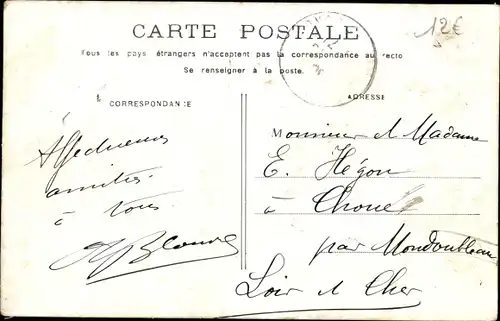 CARTE POSTALE
12€
Tous les pays étrangers n'acceptent pas la correspondance au recto
Se renseigner à la poste.
CORRESPONDANCE
ADRESSE
Affectueuses
amitiés
à tous
Monsieur et Madame
E. Hégon
à Choue
par Mondoubleau
Loir et Cher